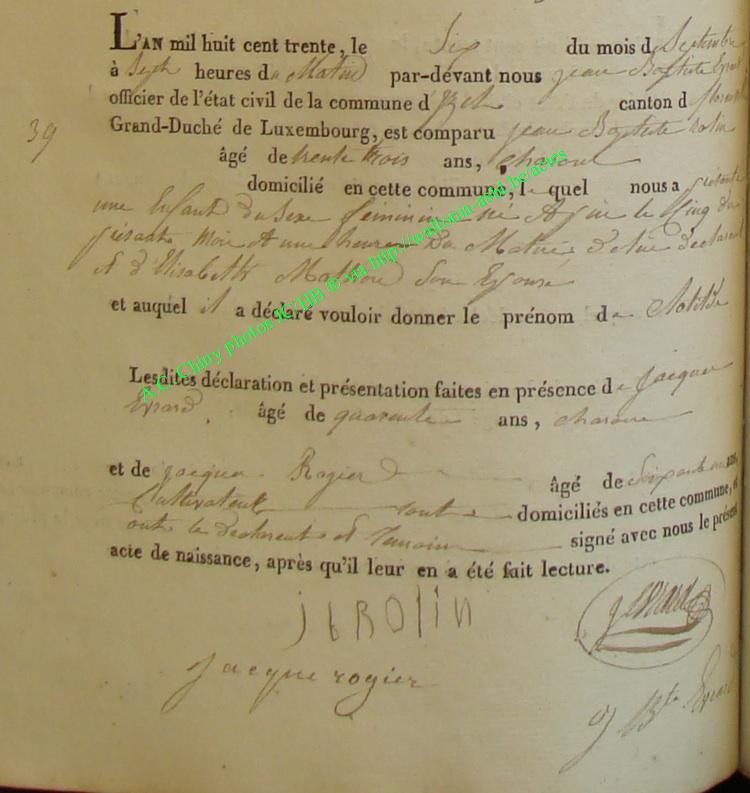 L'AN mil huit cent trente, le Six du mois d Septembre
à Sept heures du Matin par-devant nous jean Baptiste Evrard
officier de l'état civil de la commune d' canton d
39
Grand-Duché de Luxembourg, est comparu jean Baptiste rolin
âgé de trente trois ans, charon
domicilié en cette commune, l quel nous a présenté
une Enfant du Sexe féminin né le Cinq du
présent Mois A une heure Du Matin De lui declarant
et d'Elisabeth Son Epouse
et auquel il a déclaré vouloir donner le prénom de Clotilde
Lesdites déclaration et présentation faites en présence de jacque
Evrard âgé de quarente ans, charon
et de jacque Rogier âgé de Soixante ans,
Cultivateur tout domiciliés en cette commune, et
ont le declarent et temoin signé avec nous le présent
acte de naissance, après qu'il leur en a été fait lecture.
J b ROlIN
jEvrard
jacque rogier
J Bte Evrard
A.C. Chiny photos IC/HB ® via http://wellonia-avd.be/actes